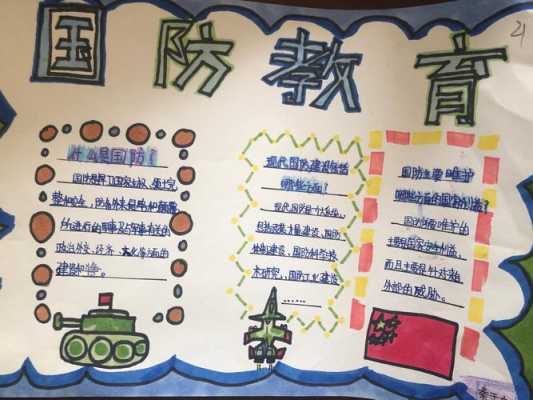 国防教育
21
什么是国防？
国防是为了国家主权、领土完
整和安全，防备外来侵略和颠覆
所进行的军事及与军事有关的
政治外交、经济、文化等方面的
建设和斗争。
现代国防建设包括
哪些方面？
现代国防是个大系统，
包括武装力量建设，国防
体制建设，国防科学技
术研究，国防工业建设
……
国防主要维护
哪些方面的国家利益？
国防所维护的
主要是国家安全利益，
而且主要是针对来自
外部的威胁。